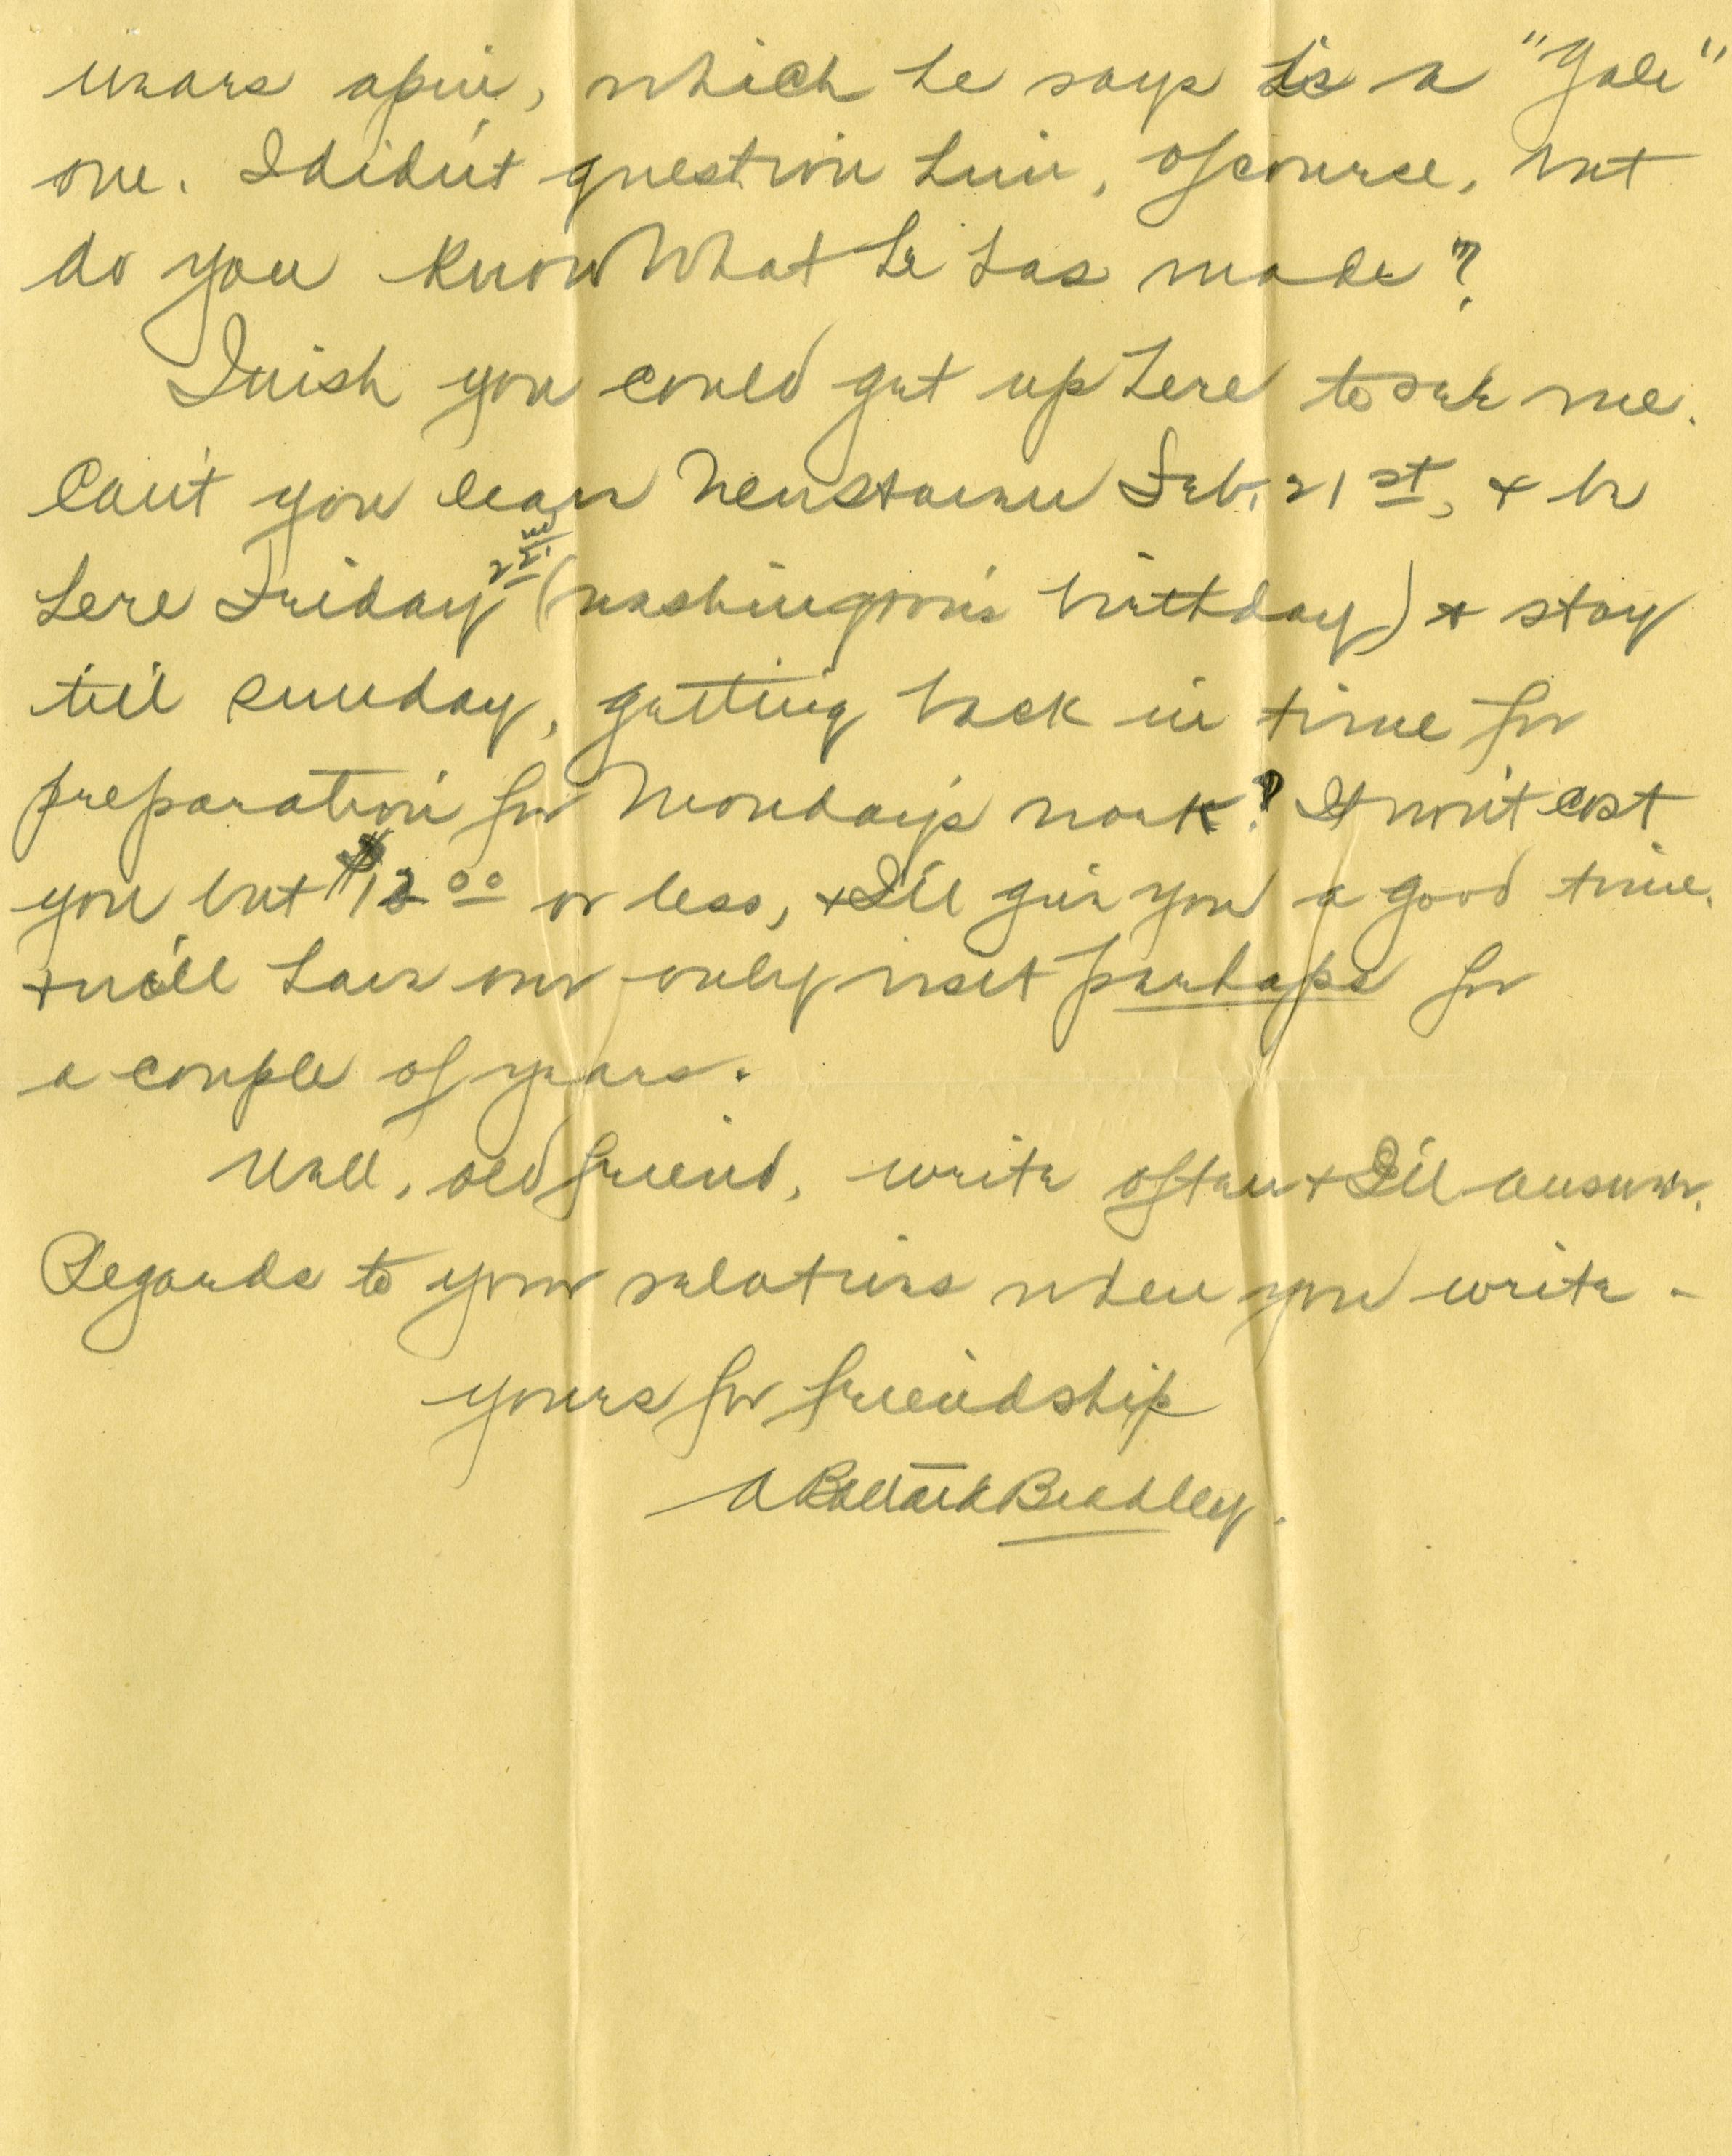 wears a pin, which he says is a "Yale"
one. I didn't question him, of course, but
do you know what he has made?
I wish you could get up here to see me.
Can't you leave Feb. 21st, & be
here Friday 22nd (Washington's birthday) & stay
till Sunday, getting back in time for
preparation for Monday's work? It won't cost
you but $12 00 or less, & I'll give you a good time.
& we'll have our only visit perhaps for
a couple of years.
Well, old friend, write often & I'll answer.
Regards to your relatives when you write -
yours for friendship
A Ballard Bradley.